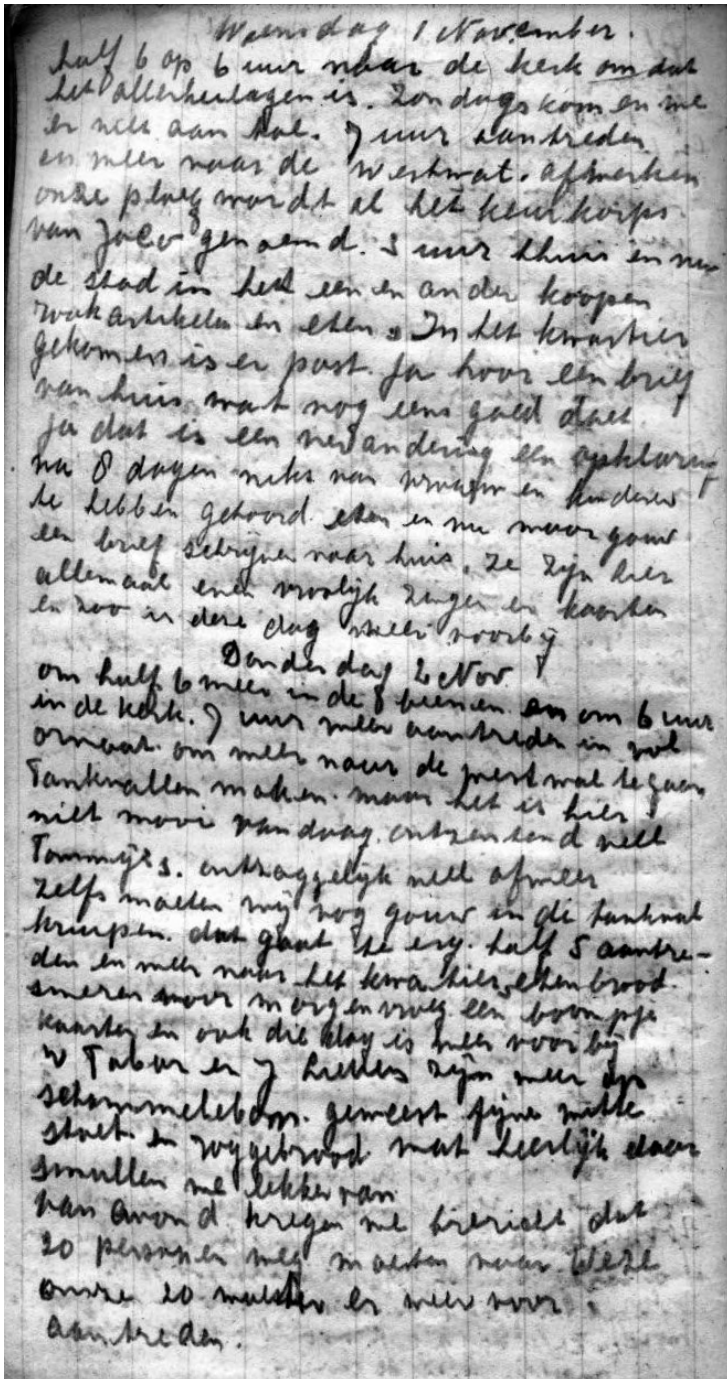 Woensdag 1 November.
half 6 op 6 uur naar de kerk omdat
het allerheilagen is. Zondags komen we
er niet aan toe. 7 uur aantreden
en weer naar de Westwal. afwerken
onze ploeg wordt al het keurkorps
van Jaco genoemd. 5 uur thuis en nu
de stad in het een en ander koopen
rookartikelen en eten. In het kwartier
gekomen is er post. Ja hoor een brief
van huis wat nog eens goed doet
Ja dat is een verandering een opklaring
na 8 dagen niks van vrouw en kinderen
te hebben gehoord. eten en nu maar gouw
een brief schrijven naar huis. Ze zijn hier
allemaal even vroolijk zingen en kaarten
en zoo is deze dag weer voorbij
Donderdag 2 Nov
om half 6 weer in de beenen en om 6 uur
in de kerk. 7 uur weer aantreden in vol
ornaat om weer naar de westwal te gaan
Tankwallen maken. maar het is hier
niet mooi vandaag. ontzettend veel
Tommy's. ontzaggelijk veel afweer
zelfs moeten wij nog gouw in de tankwal
kruipen. dat gaat te erg. half 5 aantre-
den en weer naar het kwartier, eten brood
smeren voor morgenvroeg een boompje
kaarten en ook die dag is weer voorbij
W Tabor en J zijn weer op
geweest fijne witte
stoet en roggebrood wat heerlijk daar
smullen we lekker van
van avond kregen we bericht dat
20 personen weg moesten naar Weze
onze 20 er weer voor
aantreden.